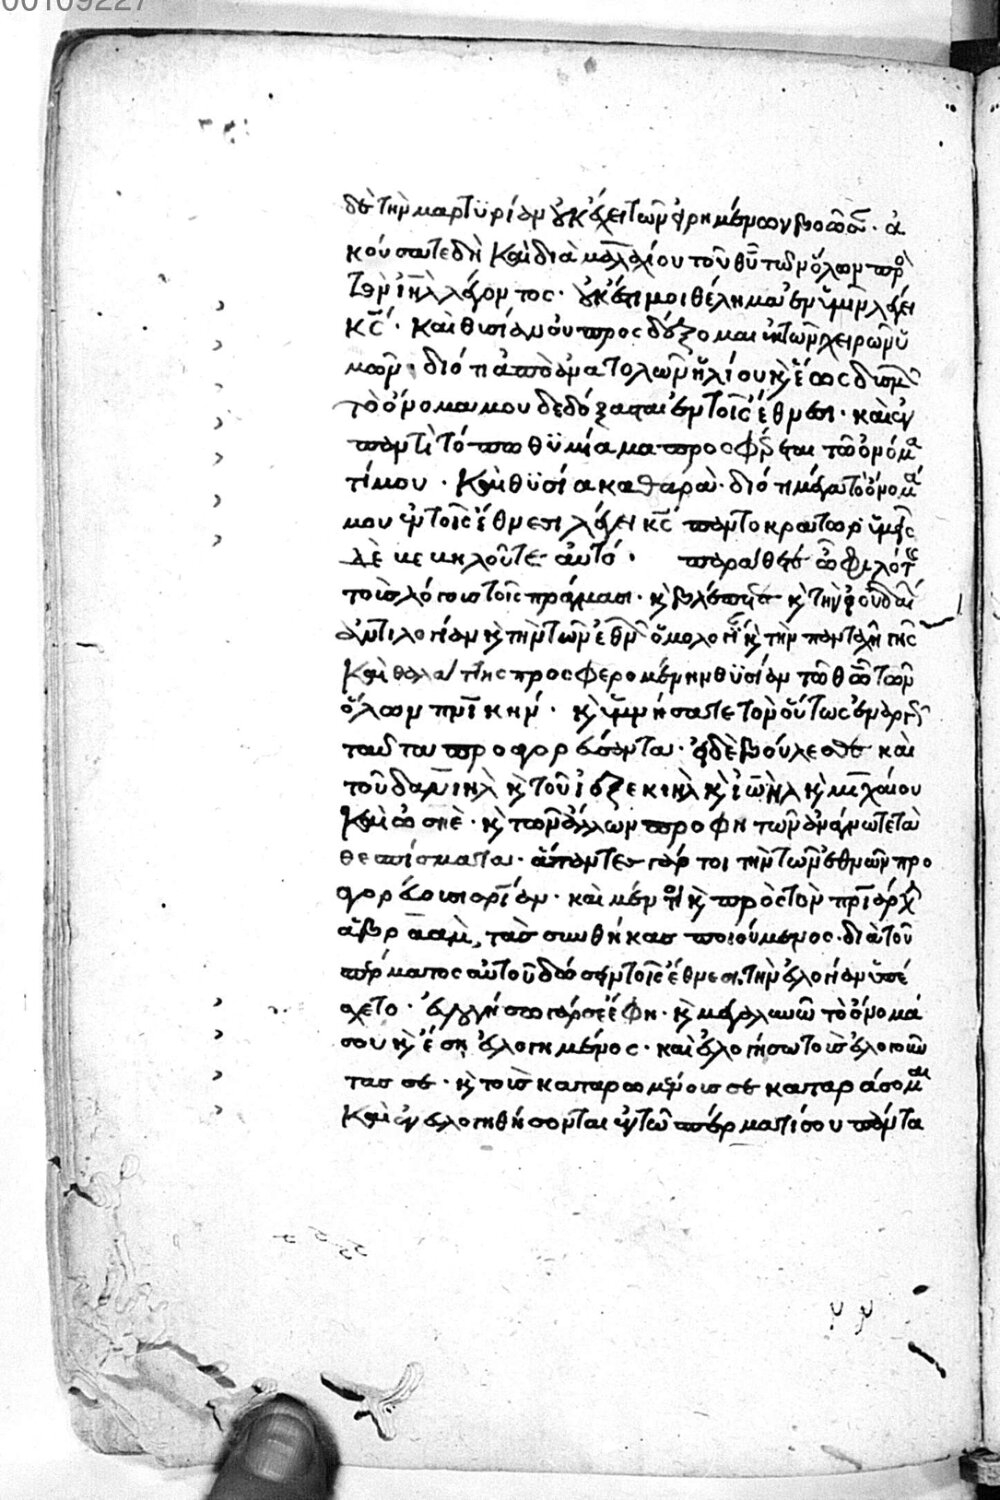 00109227
δὲ τὴν μαρτϋρίαν οὐκ ἔχει τῶν εἰρημένων βοῶσαν· ἀ
κούσατε δὴ καὶ διὰ μαλαχίου τοῦ θῦ τῶν ὅλων πρὸ
τὸν ἰηλ λέγοντος· οὐκ ἔστι μοι θέλημα ἐν ὑμῖν λέγει
κς· καὶ θυσίαν οὐ προσδέξομαι ἐκ τῶν χειρῶν ὑ
μῶν· διότι ἀπὸ ἀνατολῶν ἡλίου κ ἕως δυσμῶ
τὸ ὄνομα μου δεδόξασται ἐν τοῖς ἔθνεσι· καὶ ἐν
παντὶ τόπω θϋμίαμα προσφέρεται τῶ ὀνόμα
τί μου· καὶ θϋσία καθαρὰ· διότι μέγα τὸ ὄνομά
μου ἐν τοῖς ἔθνεσι λέγει κς παντοκράτωρ ὑμεῖς
δὲ βεβηλοῦτε αὐτό·
τοῖς λόγοις τοῖς πράγμασι· κ βλέπετε κ τὴν ἰουδαϊ
ἀντιλογίαν κ τὴν τῶν ἐθν ὁμολογί κ τὴν πανταχῆ γῆς
καθολα τῆς προσφερομένην θϋσίαν τῶ θῶ τῶν
ὅλων πνικήν· κ ὑμνήσατε τὸν οὕτως ἐναργῶ
ταῦτα προαγορεύσαντα· εἰ δὲ βούλεσθε καὶ
τοῦ δανιὴλ κ τοῦ ἰεζεκιὴλ κ ἰωὴλ κ μιχαίου
καὶ ὠσηὲ· κ τῶν ἄλλων προφητῶν ἀνάγνωτε τὰ
θεσπίσματα· ἅπαντες γάρ τοι τὴν τῶν ἐθνῶν προ
αγορεύουσι σρίαν· καὶ μέν τοι κ πρὸς τὸν πριάρχ
ἀβραὰμ, τὰς συνθήκας ποιούμενος· διὰ τοῦ
σπέρματος αὐτοῦ δώσειν τοῖς ἔθνεσι τὴν εὐλογίαν ὑπέ
σχετο· εὐλογήσω γάρ σε ἔφη· κ μεγαλυνῶ τὸ ὄνομά
σου κ ἔση εὐλογημένος· καὶ εὐλογήσω τοὺς εὐλογοῦν
τας σε· κ τοὺς καταρωμένους σε καταράσομαι
καὶ ἐνευλογηθήσονται ἐν τῶ σπέρματί σου πάντα